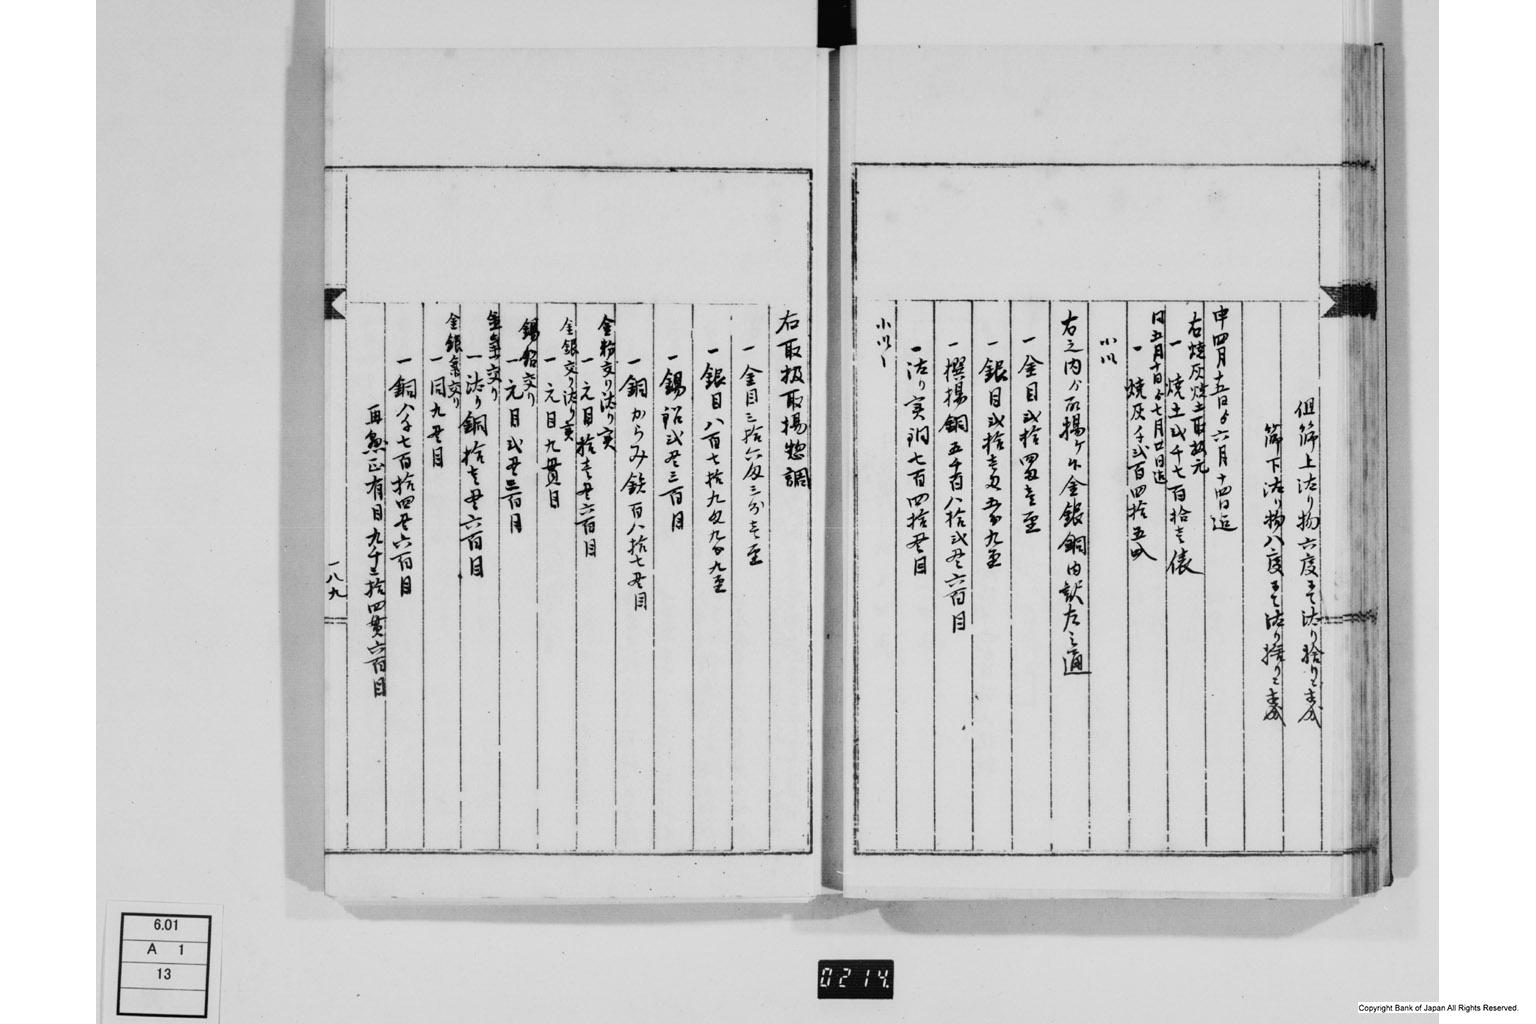 但篩上淘り物六度ニて淘り捨りニ相成
篩下淘り物八度ニて淘り捨りニ相成
申四月五日ゟ六月十四日迄
右焼灰焼土取扱元
一焼土弐千七百拾壱俵
同五月十日ゟ七月廿日迄
一焼灰千弐百四拾五叺
小以
右之内ゟ取揚ケ候金銀銅内訳左之通
一金目弐拾四匁壱厘
一銀目弐拾壱匁五分九厘
一撰揚銅五千百八拾弐貫六百目
一淘り実銅七百四拾貫目
小以
右取扱取揚惣調
一金目三拾六匁三分壱厘
一銀目八百七拾九匁九分九厘
一錫鉛弐貫三百目
一銅からみ鉄百八拾七貫目
金粉交り淘り実
一元目拾壱貫六百目
金銀交り淘り実
一元目九貫目
錫鉛交り
一元目弐貫三百目
金気交り
一淘り銅拾壱貫六百目
金銀気交り
一同九貫目
一銅八千七百拾四貫六百目
再惣正有目九千三拾四貫六百目
一八九
6.01
A 1
13
0214.
Copyright Bank of Japan All Rights Reserved.